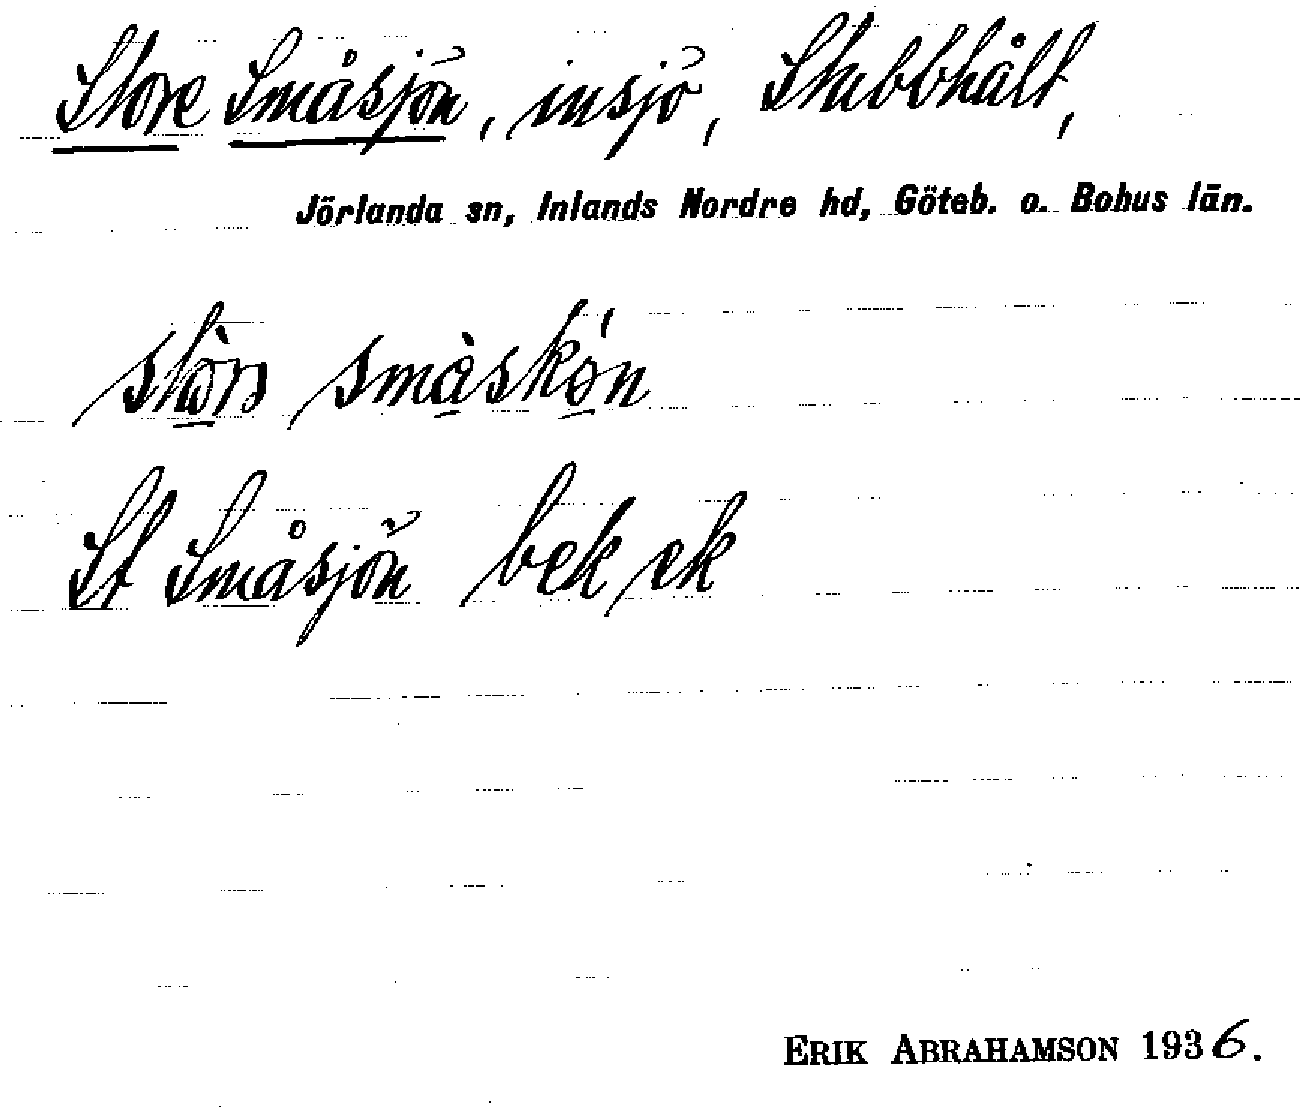 Store Småsjön, insjö, Stubbhålt,
Jörlanda sn, Inlands Nordre hd, Göteb. o. Bohus län.
småskòn
St Småsjön bek ek
ERIK ABRAHAMSON 1936.